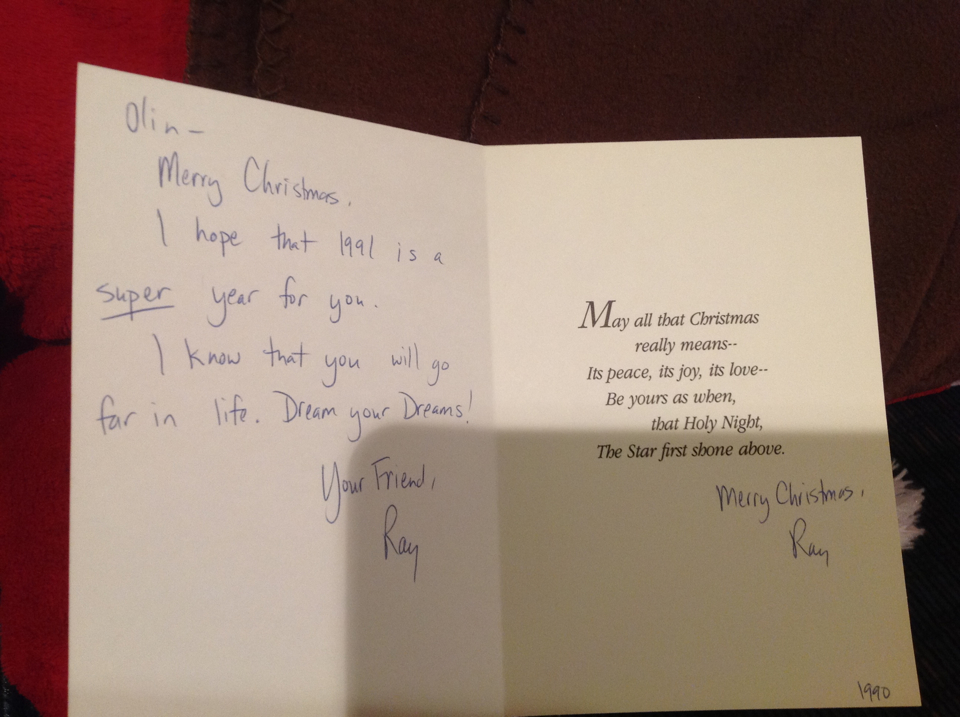 Olin-
Merry Christmas.
I hope that 1991 is a
super year for you.
I know that you will go
far in life. Dream your Dreams!
Your Friend,
Ray
May all that Christmas
really means--
Its peace, its joy, its love--
Be yours as when,
that Holy Night,
The Star first shone above.
Merry Christmas,
Ray
1990